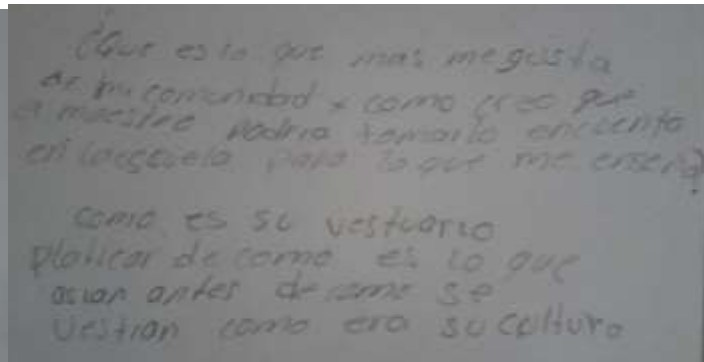 ¿Que es lo que mas me gusta
de mi comunidad y como creo que
el maestro podria tomarlo encuenta
en laescuela para lo que me enseña?
como es su vestuario
platicar de como es lo que
asian antes de como se
vestian como era su cultura